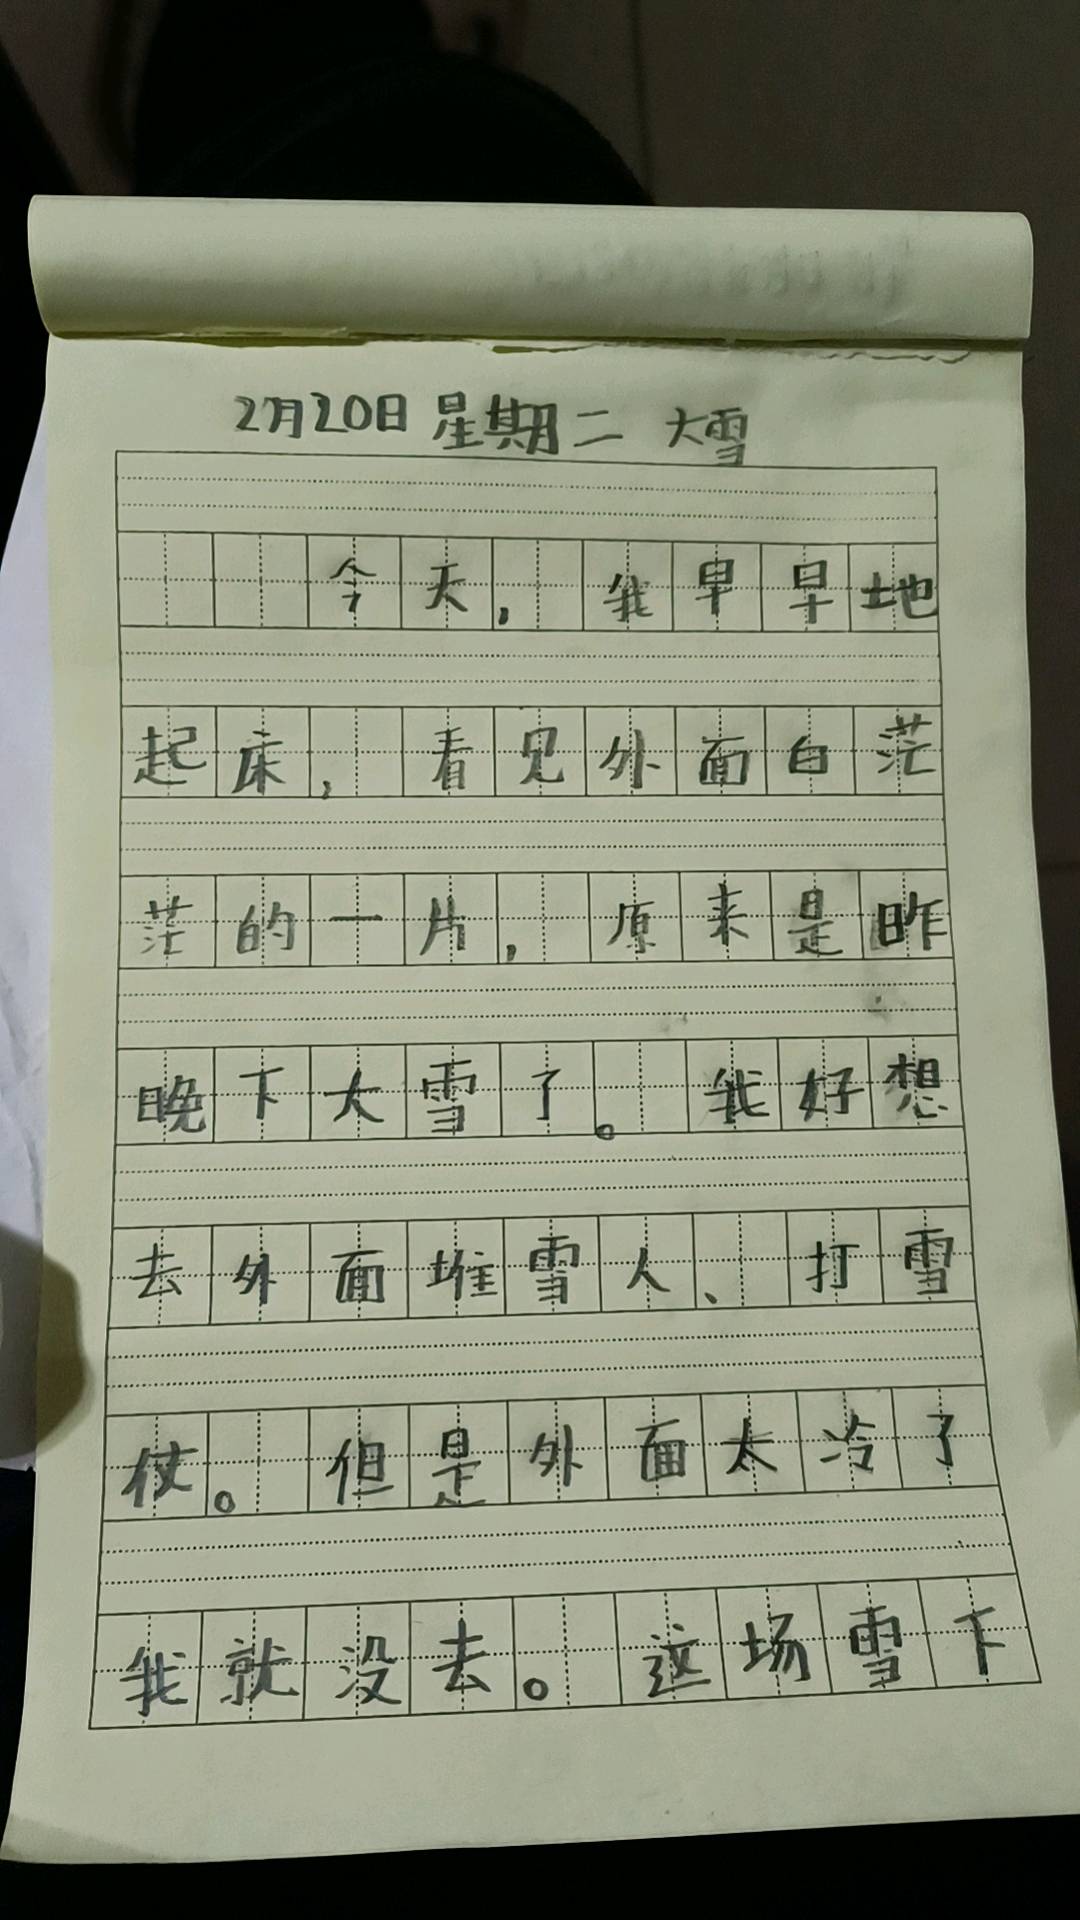 2月20日 星期二 大雪
今天，我早早地
起床，看见外面白茫
茫的一片，原来是昨
晚下大雪了。我好想
去外面堆雪人、打雪
仗。但是外面太冷了
我就没去。这场雪下